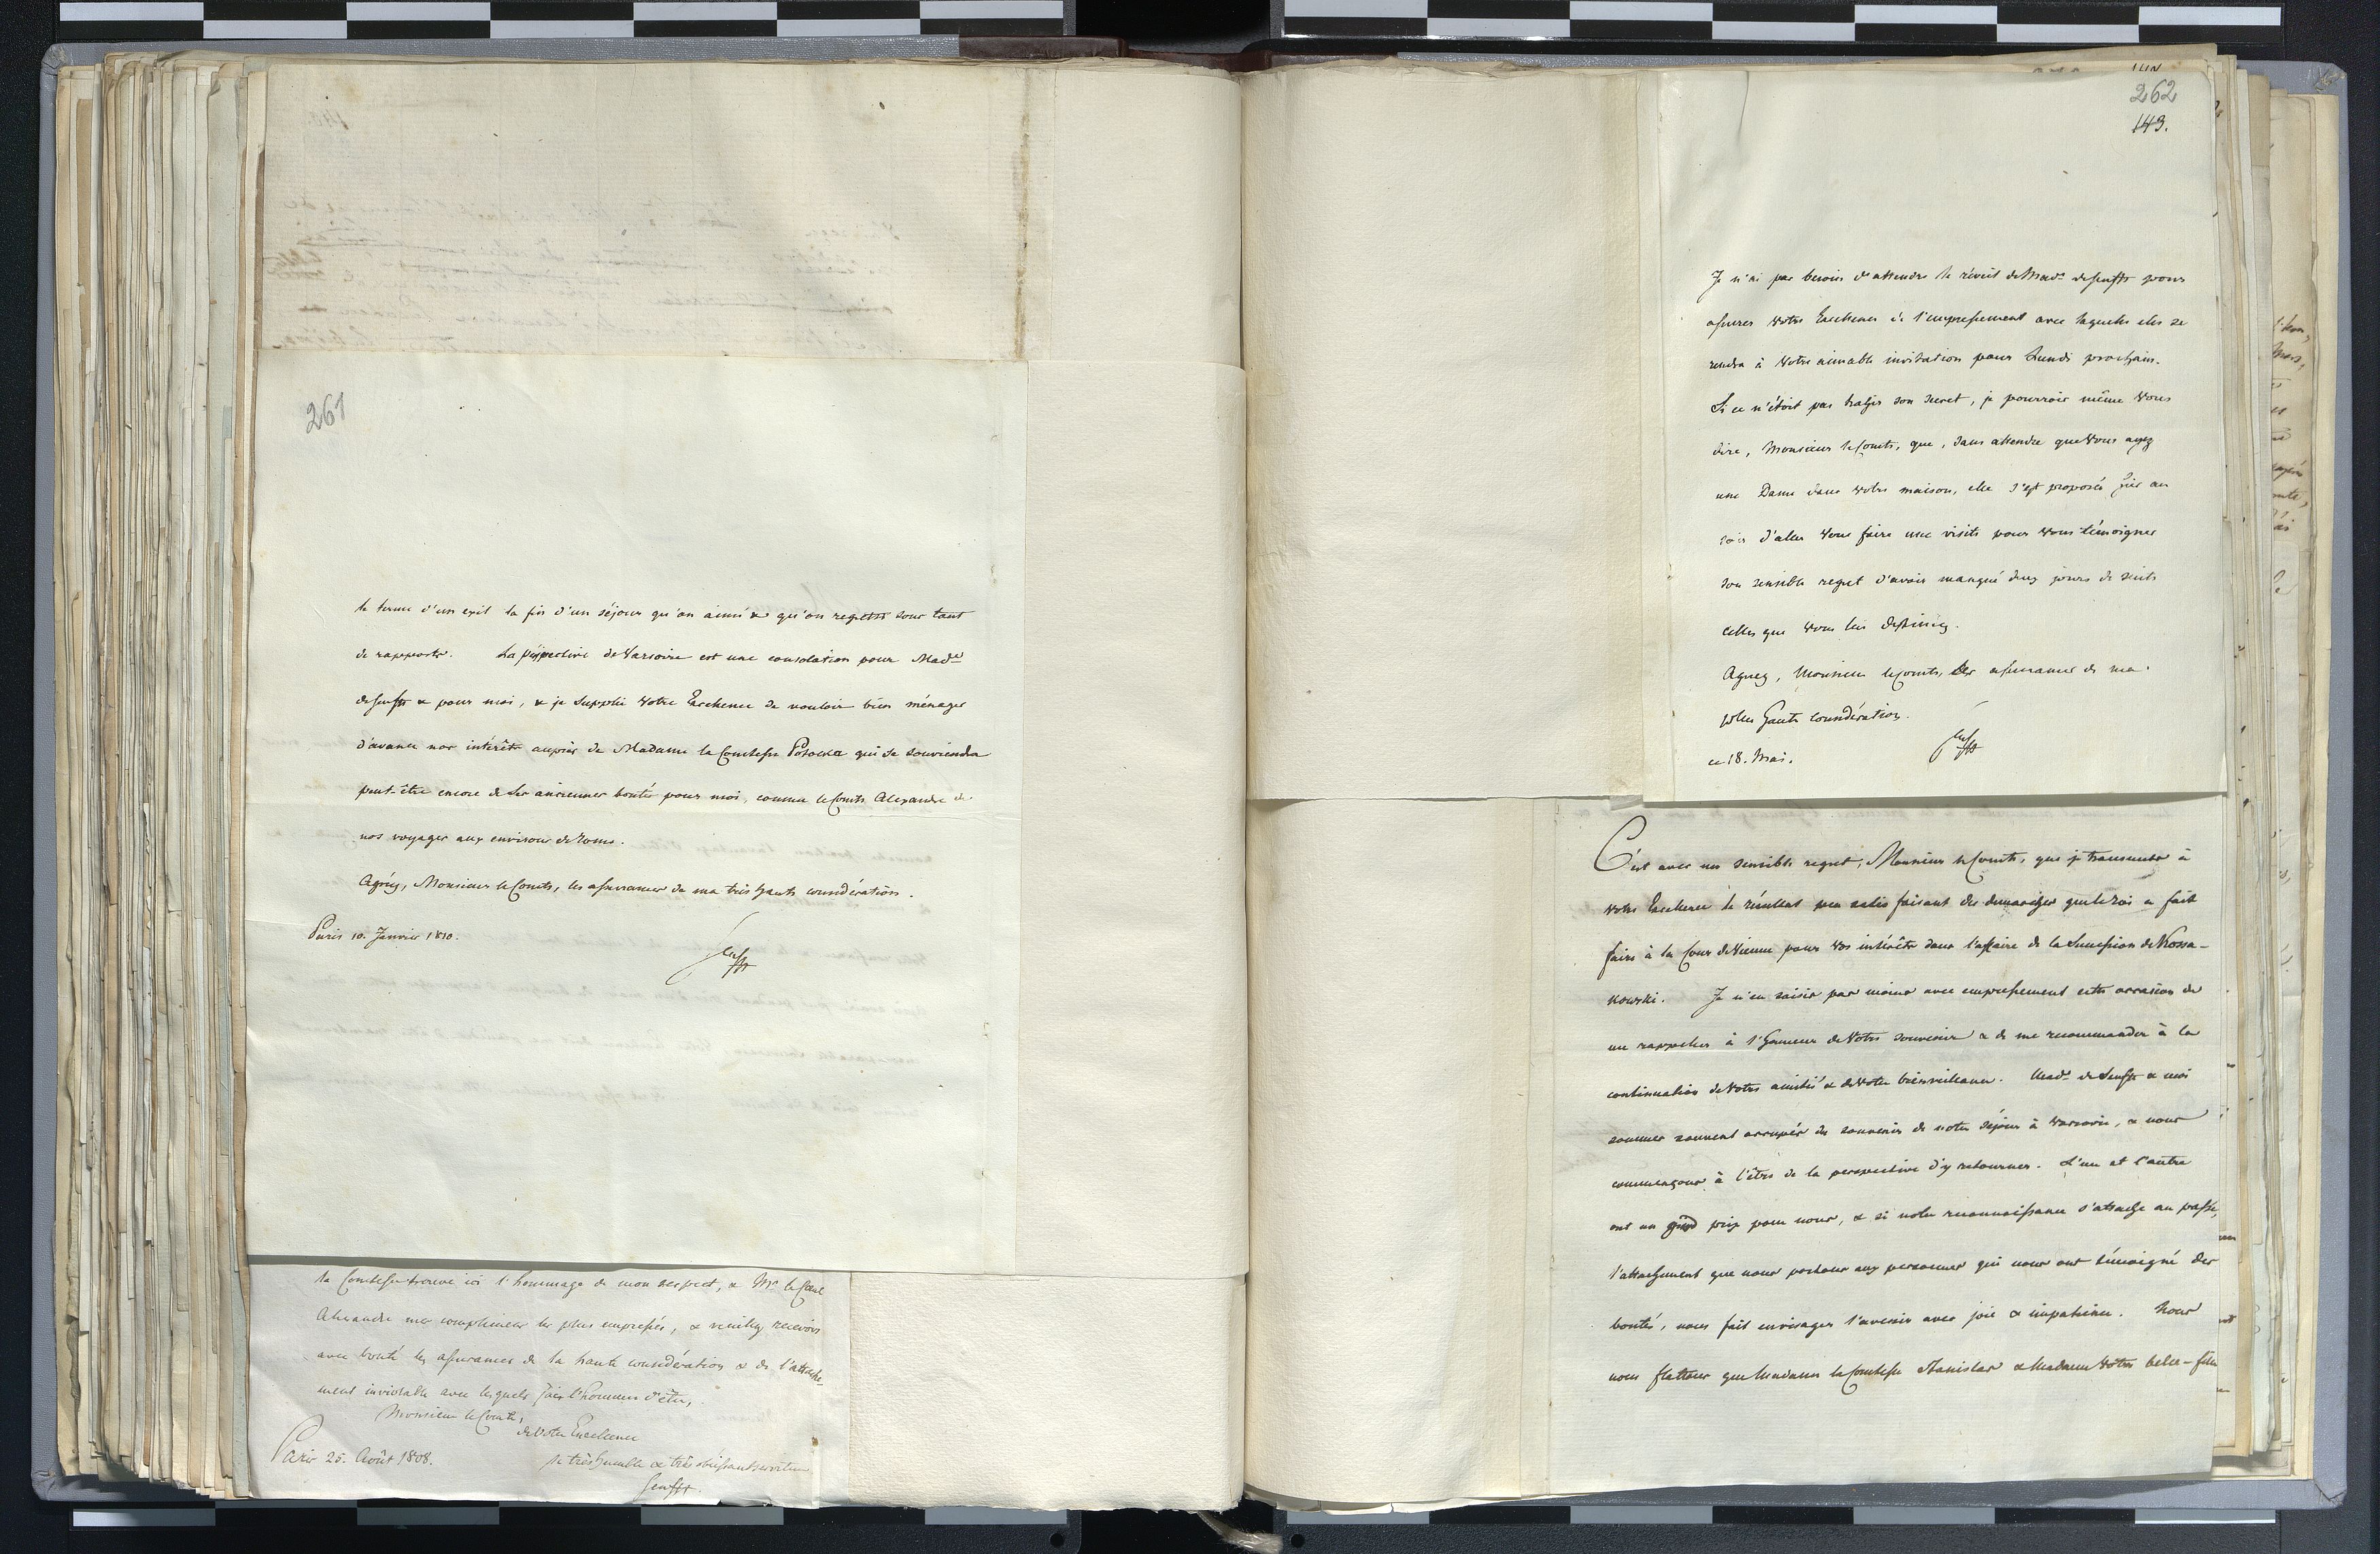 261
le terme d'un exil la fin d'un séjour qu'on aime & qu'on regrette sous tant
de rapports. La perspective de Varsovie est une consolation pour Mad.e
de Senfft & pour moi, & je supplie Votre Excellence de vouloir bien ménager
d'avance nos intérêts auprès de Madame la Comtesse Potocka qui se souviendra
peut-être encore de Ses anciennes bontés pour moi, comme le Comte Alexandre de
nos voyages aux environs de Rome.
Agréez, Monsieur le Comte, les assurances de ma très haute considération.
Paris 10. Janvier 1810.
Senfft
la Comtesse trouve ici l'hommage de mon respect, & Mr. le Comte
Alexandre mes complimens les plus empressés, & veuillez recevoir
avec bonté les assurances de la haute considération & de l'attache-
ment inviolable avec lesquels j'ai l'honneur d'être,
Monsieur le Comte,
de Votre Excellence
le très humble & très obéissant serviteur
Senfft.
Paris 25. Août 1808.
262
143.
Je n'ai pas besoin d'attendre le réveil de Mad.e de Senfft pour
assurer Votre Excellence de l'empressement avec laquelle elle se
rendra à Votre aimable invitation pour Lundi prochain.
Si ce n'étoit pas trahir son secret, je pourrois même Vous
dire, Monsieur le Comte, que, sans attendre que Vous ayez
une Dame dans Votre maison, elle s'est proposée hier au
soir d'aller Vous faire une visite pour Vous témoigner
son sensible regret d'avoir manqué deux jours de suite
celles que Vous lui destiniez.
Agréez, Monsieur le Comte, les assurances de ma
plus haute considération.
ce 18. Mai.
Senfft
C'est avec un sensible regret, Monsieur le Comte, que je transmets à
Votre Excellence le résultat peu satisfaisant des démarches que le Roi a fait
faire à la Cour de Vienne pour Vos intérêts dans l'affaire de la Succession de Kossa-
kowski. Je n'en saisis pas moins avec empressement cette occasion de
me rappeller à l'honneur de Votre souvenir & de me recommander à la
continuation de Votre amitié & de Votre bienveillance. Mad.e de Senfft & moi
sommes souvent occupés du souvenir de notre séjour à Varsovie, & nous
commençons à l'être de la perspective d'y retourner. L'un et l'autre
ont un grand prix pour nous, & si notre reconnaissance s'attache au passé,
l'attachement que nous portons aux personnes qui nous ont témoigné des
bontés, nous fait envisager l'avenir avec joie & impatience. Nous
nous flattons que Madame la Comtesse Stanislas & Madame Votre belle-fille